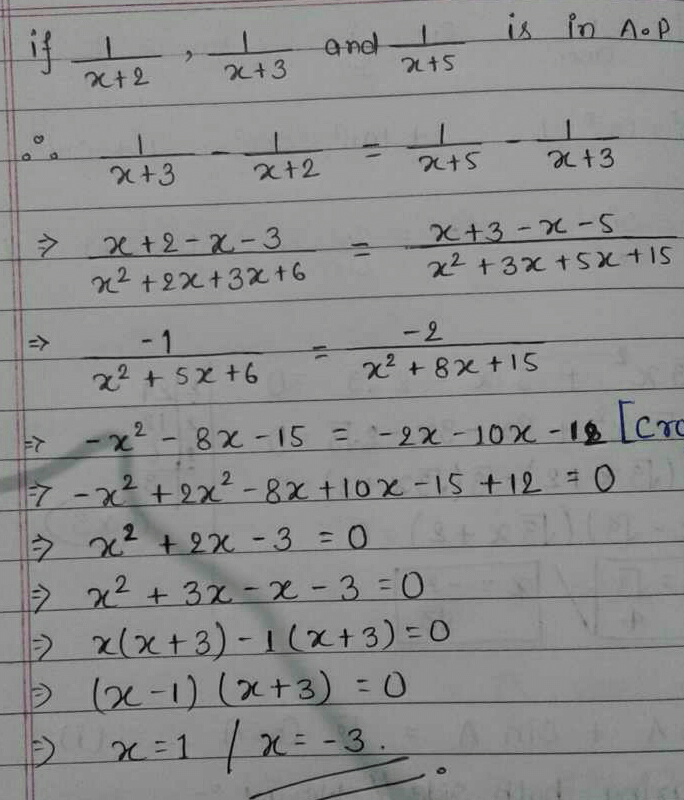 if 1/(x+2) , 1/(x+3) and 1/(x+5) is in A.P
∴ 1/(x+3) - 1/(x+2) = 1/(x+5) - 1/(x+3)
⇒ (x+2-x-3)/(x²+2x+3x+6) = (x+3-x-5)/(x²+3x+5x+15)
⇒ -1/(x²+5x+6) = -2/(x²+8x+15)
⇒ -x² - 8x - 15 = -2x - 10x - 12 [Cro
⇒ -x² + 2x² - 8x + 10x - 15 + 12 = 0
⇒ x² + 2x - 3 = 0
⇒ x² + 3x - x - 3 = 0
⇒ x(x+3) - 1(x+3) = 0
⇒ (x-1) (x+3) = 0
⇒ x = 1 / x = -3.